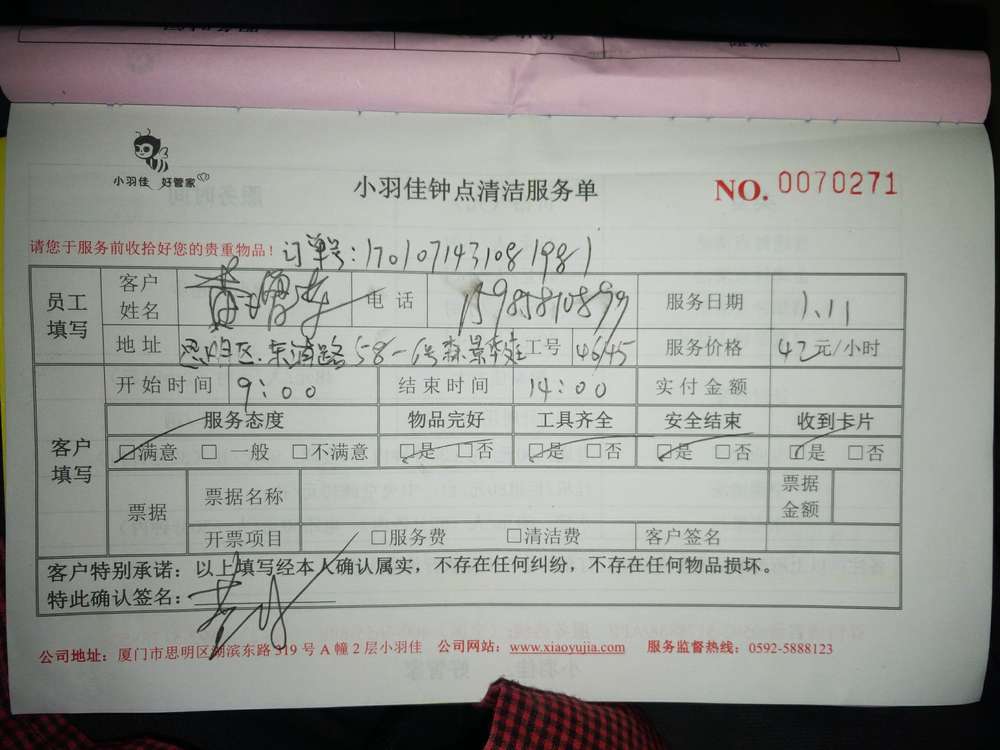 小羽佳 好管家
小羽佳钟点清洁服务单
NO. 0070271
请您于服务前收拾好您的贵重物品！ 订单号：1701071431081981
员工填写 客户姓名 电话 15985810899 服务日期 1.11
地址 思明区.东浦路58- 森景 工号 4645 服务价格 42元/小时
客户填写 开始时间 9：00 结束时间 14：00 实付金额
服务态度 物品完好 工具齐全 安全结束 收到卡片
☑满意 □ 一般 □不满意 ☑是 □否 ☑是 □否 ☑是 □否 ☑是 □否
票据 票据名称 票据金额
开票项目 □服务费 □清洁费 客户签名
客户特别承诺：以上填写经本人确认属实，不存在任何纠纷，不存在任何物品损坏。
特此确认签名：
公司地址：厦门市思明区湖滨东路319号A幢2层小羽佳 公司网站：www.xiaoyujia.com 服务监督热线：0592-5888123